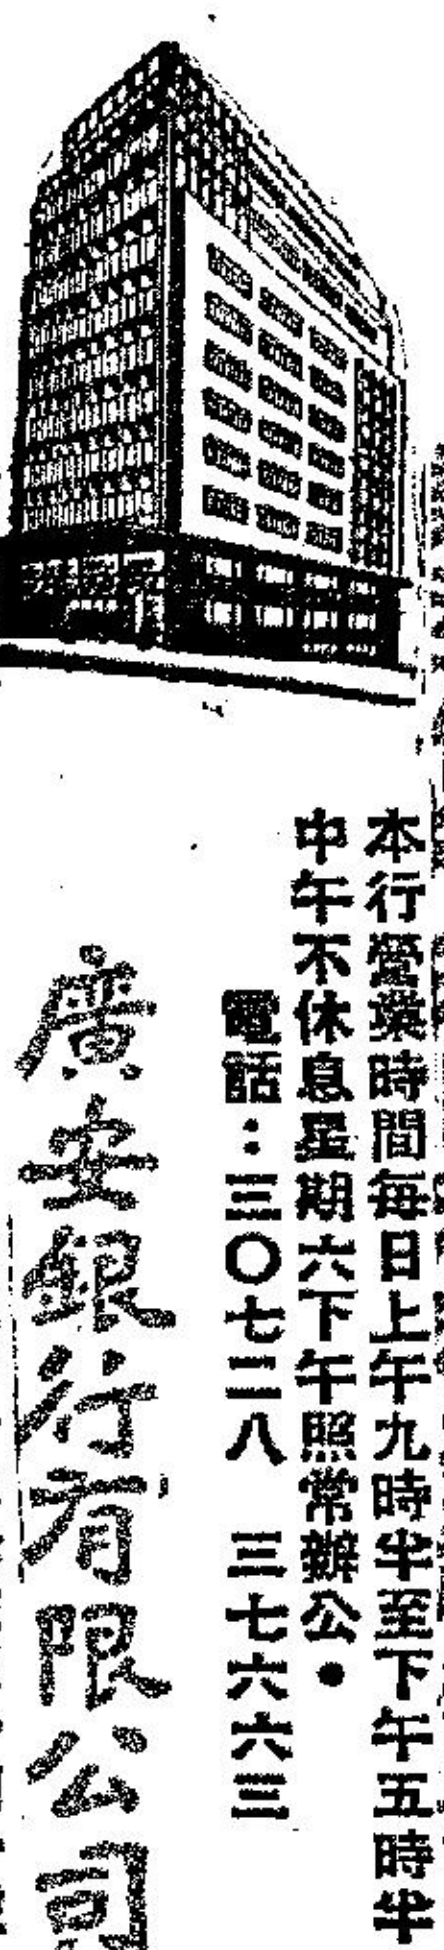 本行營業時間每日上午九時半至下午五時半
中午不休息星期六下午照常辦公●
電話：三〇七二八　三七六六三
廣安銀行有限公司